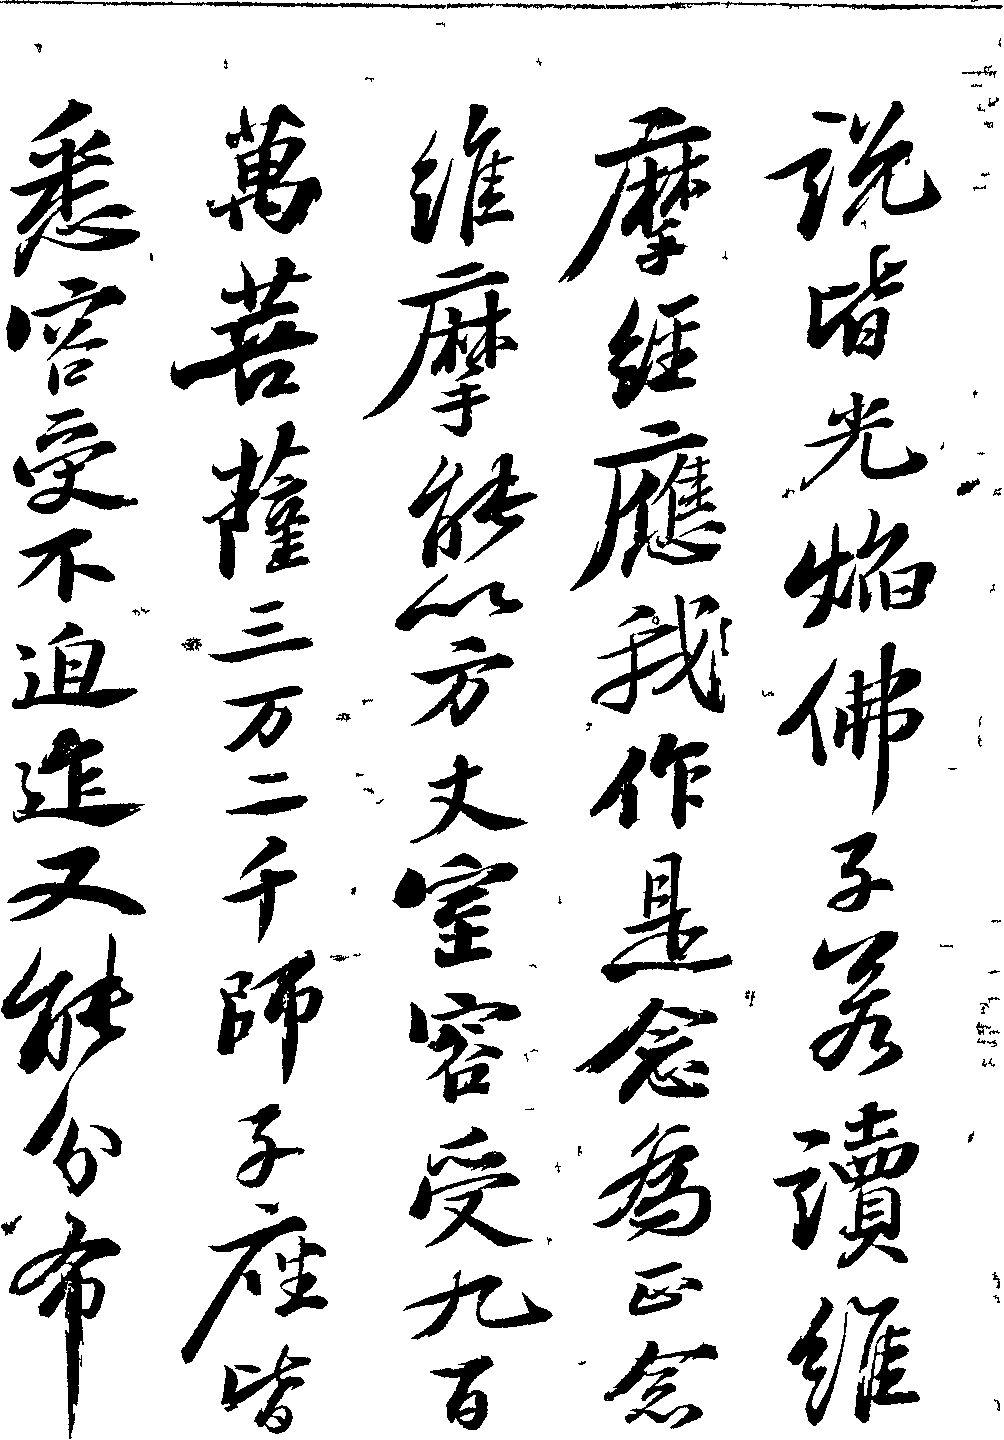 説皆光焰佛子若讀維
摩經應我作是念為正念
維摩能以方丈室容九百
萬菩薩三万二千師子座皆
悉容受不迫迮又能分布